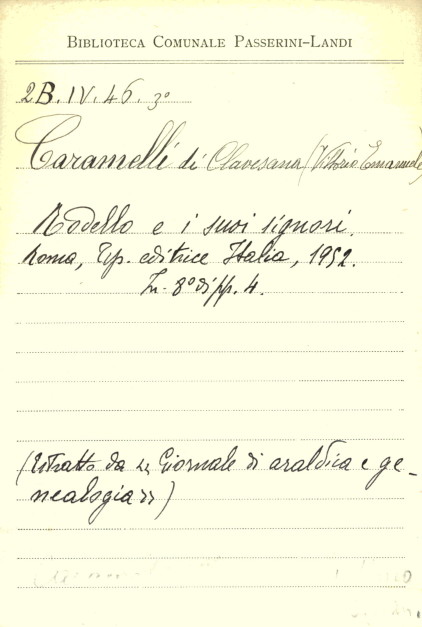 BIBLIOTECA COMUNALE PASSERINI-LANDI
2B. IV. 46. 3º
Caramelli di Clavesana (Vittorio Emanuele)
Rodello e i suoi signori.
Roma, Tip. editrice Italia, 1952.
In- 8º di pp. 4.
(Estratto da « Giornale di araldica e ge-
nealogia »)